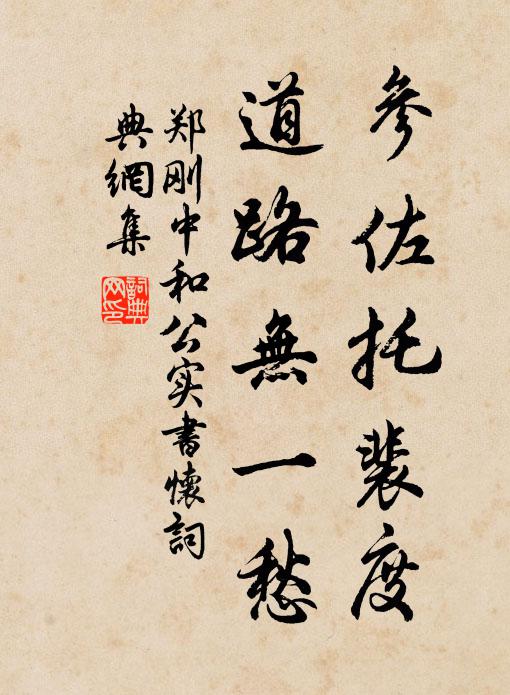 參佐托裴度
道路無一愁
郑刚中和公实書懷詞
典網集
詞典网印